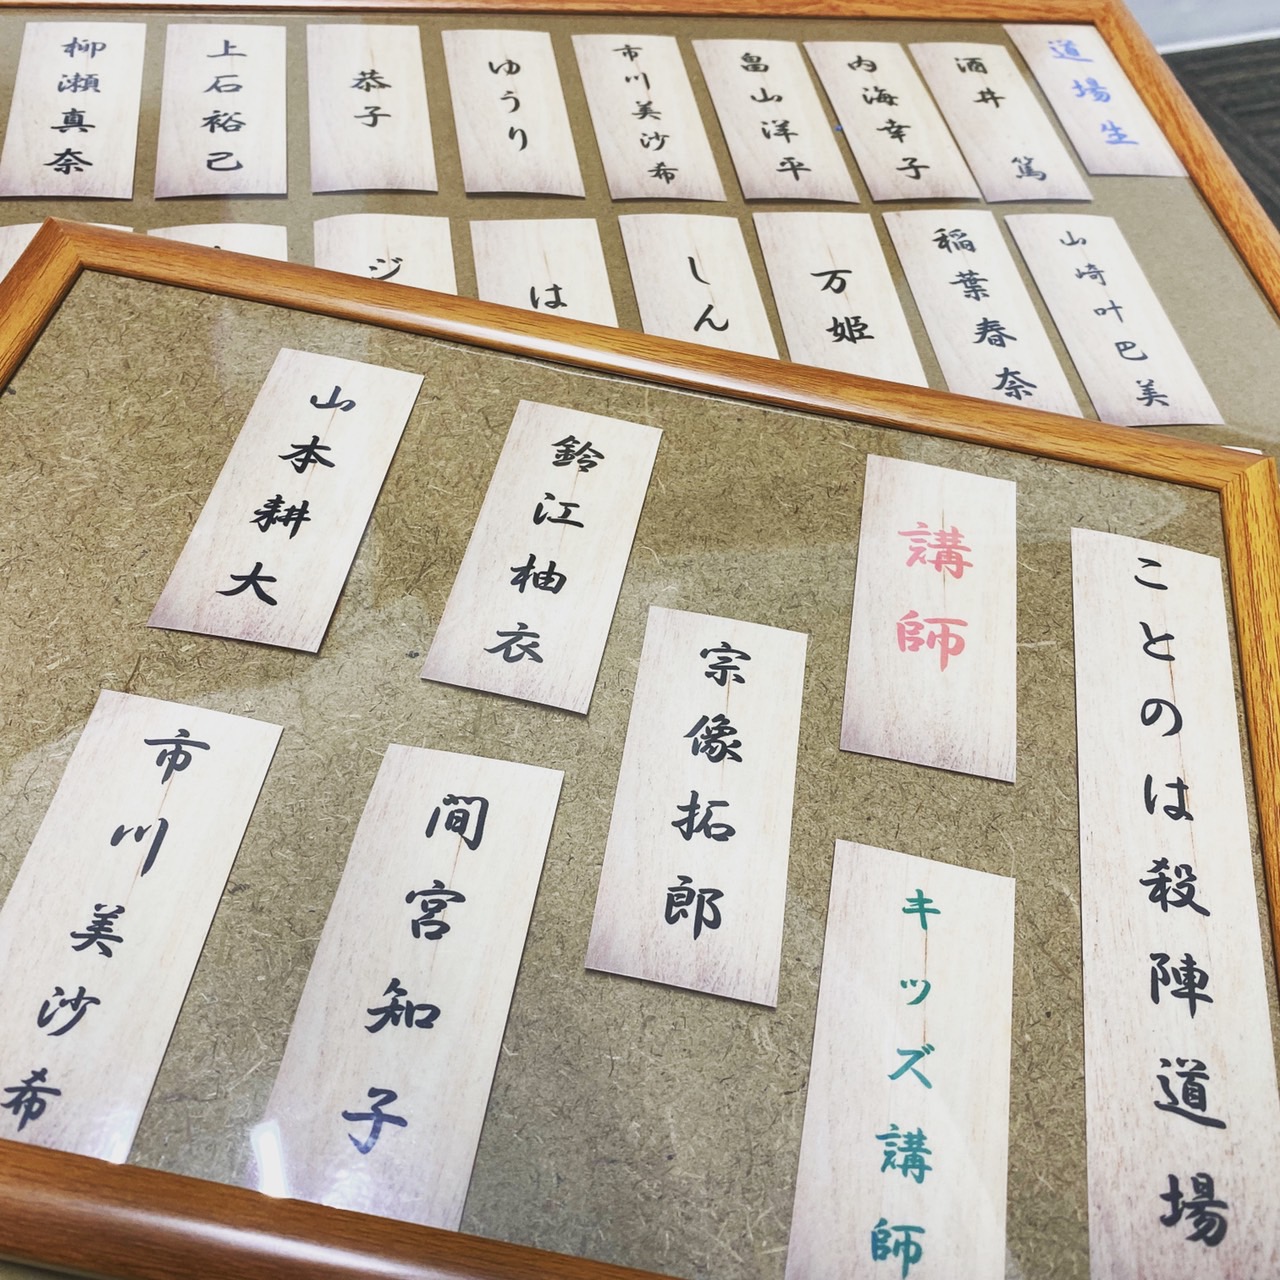 道場生
酒井 篤
内海幸子
畠山洋平
市川美沙希
ゆうり
恭子
上石裕己
柳瀬真奈
山崎叶巴美
稲葉春奈
万姫
しん
は
ジ
ことのは殺陣道場
講師
宗像拓郎
鈴江柚衣
山本耕大
キッズ講師
間宮知子
市川美沙希